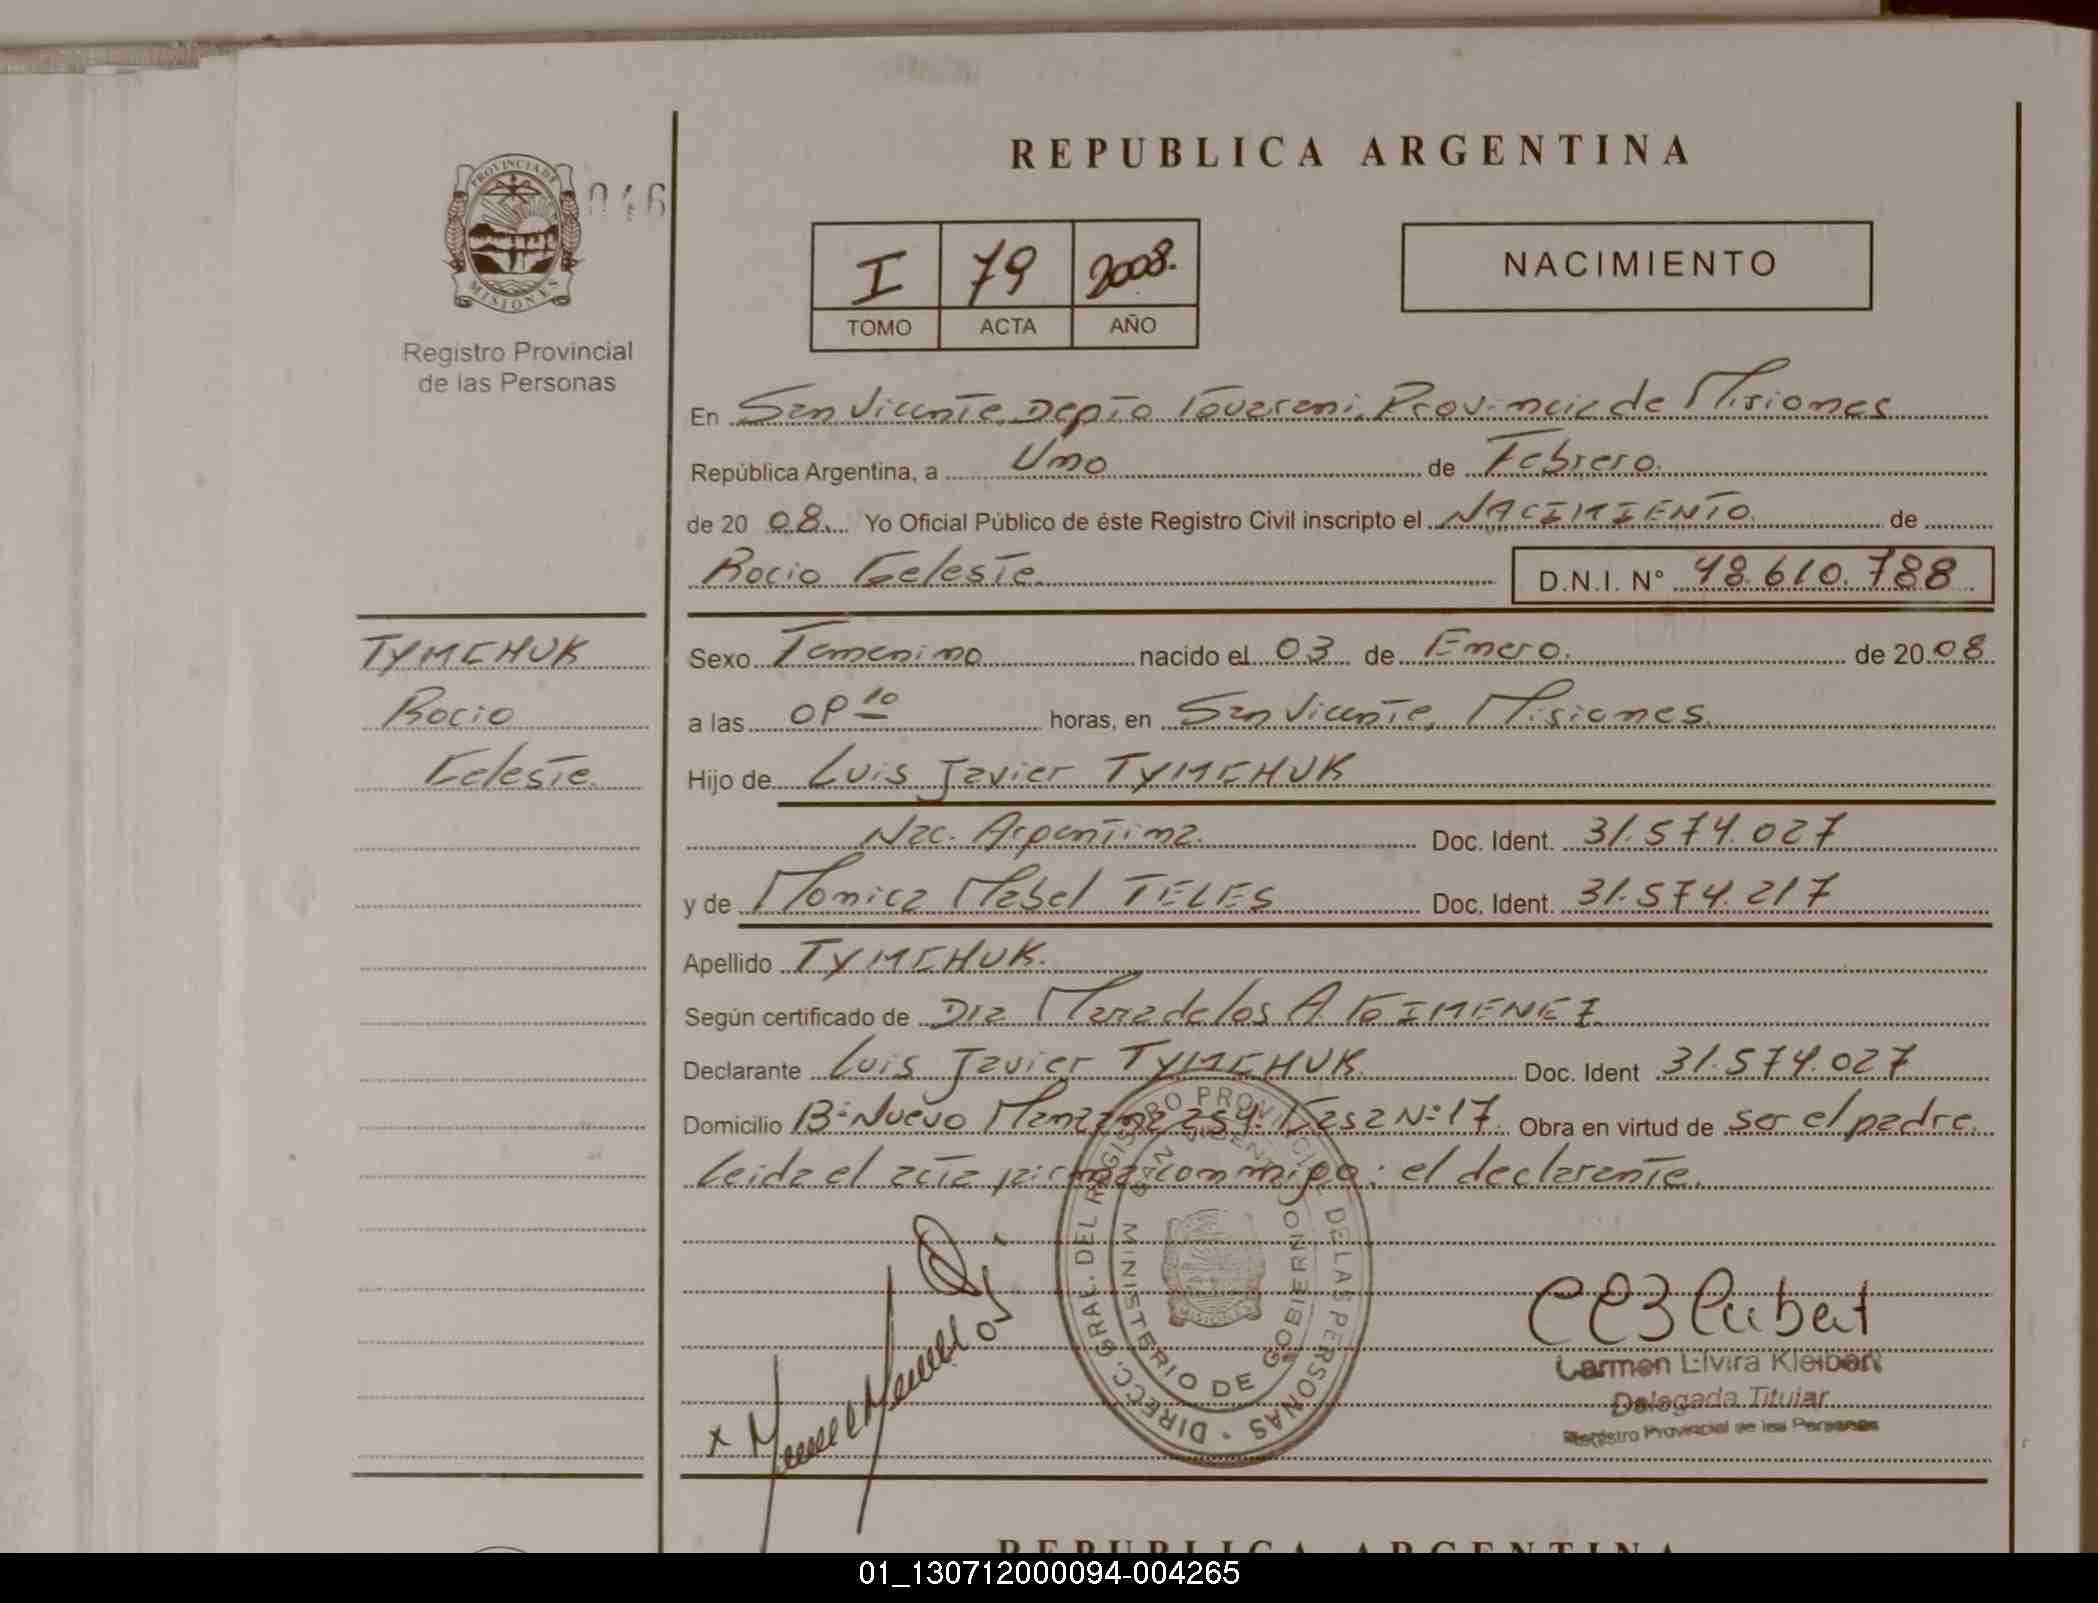 REPUBLICA ARGENTINA
PROVINCIA DE MISIONES
046
Registro Provincial
de las Personas
I 79 2008.
TOMO ACTA AÑO
NACIMIENTO
En San Vicente, Depto Guarani, Provincia de Misiones
República Argentina, a Uno de Febrero.
de 20 08. Yo Oficial Público de éste Registro Civil inscripto el NACIMIENTO de
Rocio Celeste D.N.I. N° 48.610.788
TYMCHUK
Rocio
Celeste.
Sexo Femenino nacido el 03 de Enero. de 20 08
a las 09 10 horas, en San Vicente, Misiones
Hijo de Luis Javier TYMCHUK
Nac. Argentina. Doc. Ident. 31.574.027
y de Monica Mabel TELES Doc. Ident. 31.574.217
Apellido TYMCHUK.
Según certificado de Dra Maria de los A. GIMENEZ
Declarante Luis Javier TYMCHUK Doc. Ident 31.574.027
Domicilio B° Nuevo Manzana 254. Casa N° 17. Obra en virtud de ser el padre.
Leida el acta firma conmigo: el declarante.
DIRECC. GRAL. DEL REGISTRO PROVINCIAL DE LAS PERSONAS
MINISTERIO DE GOBIERNO
SAN VICENTE
MISIONES
Carmen Elvira Kleibert
Delegada Titular
Registro Provincial de las Personas
REPUBLICA ARGENTINA
01_130712000094-004265